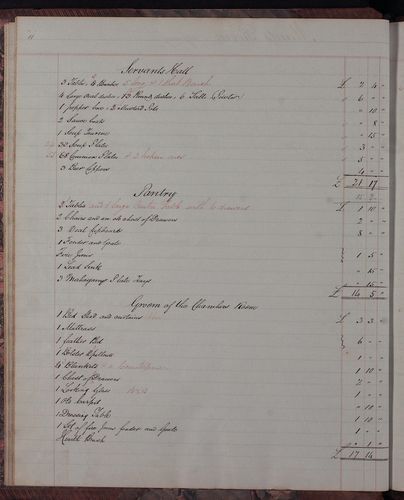 11
Servants Hall
3 Tables, 4 Benches £ 2 4 "
4 Large oval dishes, 13 Round dishes, 6 Table Pewter " 6 " "
1 pepper box, 2 Mustard Pots " " 10 "
2 Sauce " " 8 "
1 Soup Tureen " " 15 "
Soup Plates " 3 " "
68 Common Plates " 5 " "
3 Beer Coppers " 4 " "
£ 21 17 "
Pantry
2 Tables and 1 large Center Table with 6 drawers £ 1 10 "
2 Chairs and an old chest of Drawers " 2 " "
3 Oval Cupboards " 8 " "
1 Fender and Grate
Fire Irons " 1 5 "
1 Lead Sink " " 15 "
3 Mahogany Plate Trays " " 15 "
£ 14 5 "
Groom of the Chambers Room
1 Bed Stead and curtains £ 3 3 "
1 Mattress
1 feather Bed " 6 " "
1 Bolster & pillow " 1 " "
4 Blankets " 1 10 "
1 Chest of Drawers " 2 " "
1 Looking Glass " 1 " "
1 Old Carpet " " 10 "
1 Dressing Table " " 10 "
1 Set of fire Irons fender and grate " 1 10 "
Hearth Brush " " 1 "
£ 17 14